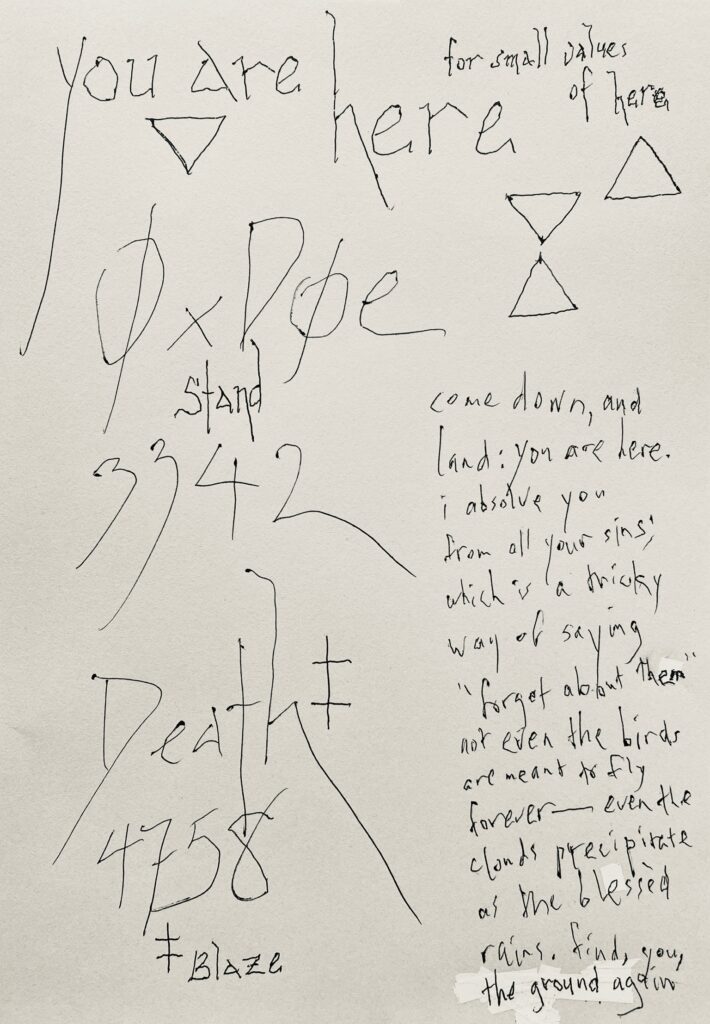 you are here
for small values
of here
0xD0e
Stand
3342
Death‡
4758
‡Blaze
come down, and
land: you are here.
i absolve you
from all your sins;
which is a tricky
way of saying
"forget about them"
not even the birds
are meant to fly
forever— even the
clouds precipitate
as the blessèd
rains. find, you,
the ground again